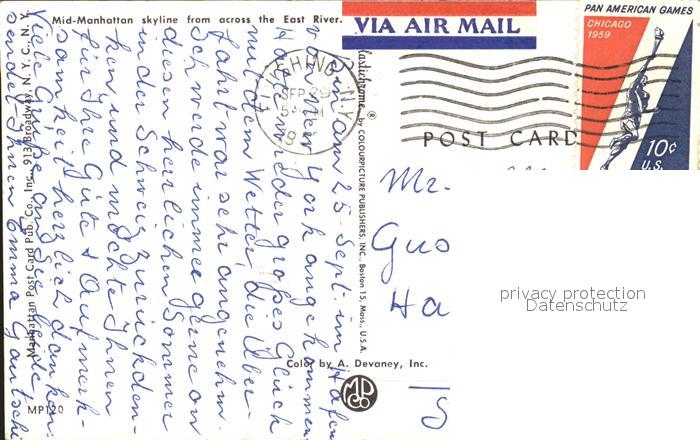 Mid-Manhattan skyline from across the East River.
VIA AIR MAIL
PAN AMERICAN GAMES
CHICAGO
1959
10¢
U.S.
FLUSHING, N.Y.
SEP 29
POST CARD
Plastichrome ® by COLOURPICTURE PUBLISHERS, INC., Boston 15, Mass., U.S.A.
Manhattan Post Card Pub. Co., Inc., 913 Broadway, N.Y.C., N.Y.
Bin am 25. Sept. im Hafen
von New York angekommen
Hatte wieder grosses Glück
mit dem Wetter, die Über-
fahrt war sehr angenehm.
Schwede immer gerne an
diesen herrlichen Sommer
in der Schweiz zurückden-
ken, und möchte Ihnen
für Ihre Güte & Aufmerk-
samkeit herzlich danken.
Viele Grüsse an Sie beide
sendet Ihnen Emma Gautschi
Mr.
Gus
Ha
Color by A. Devaney, Inc.
MP120
MPCO
privacy protection
Datenschutz